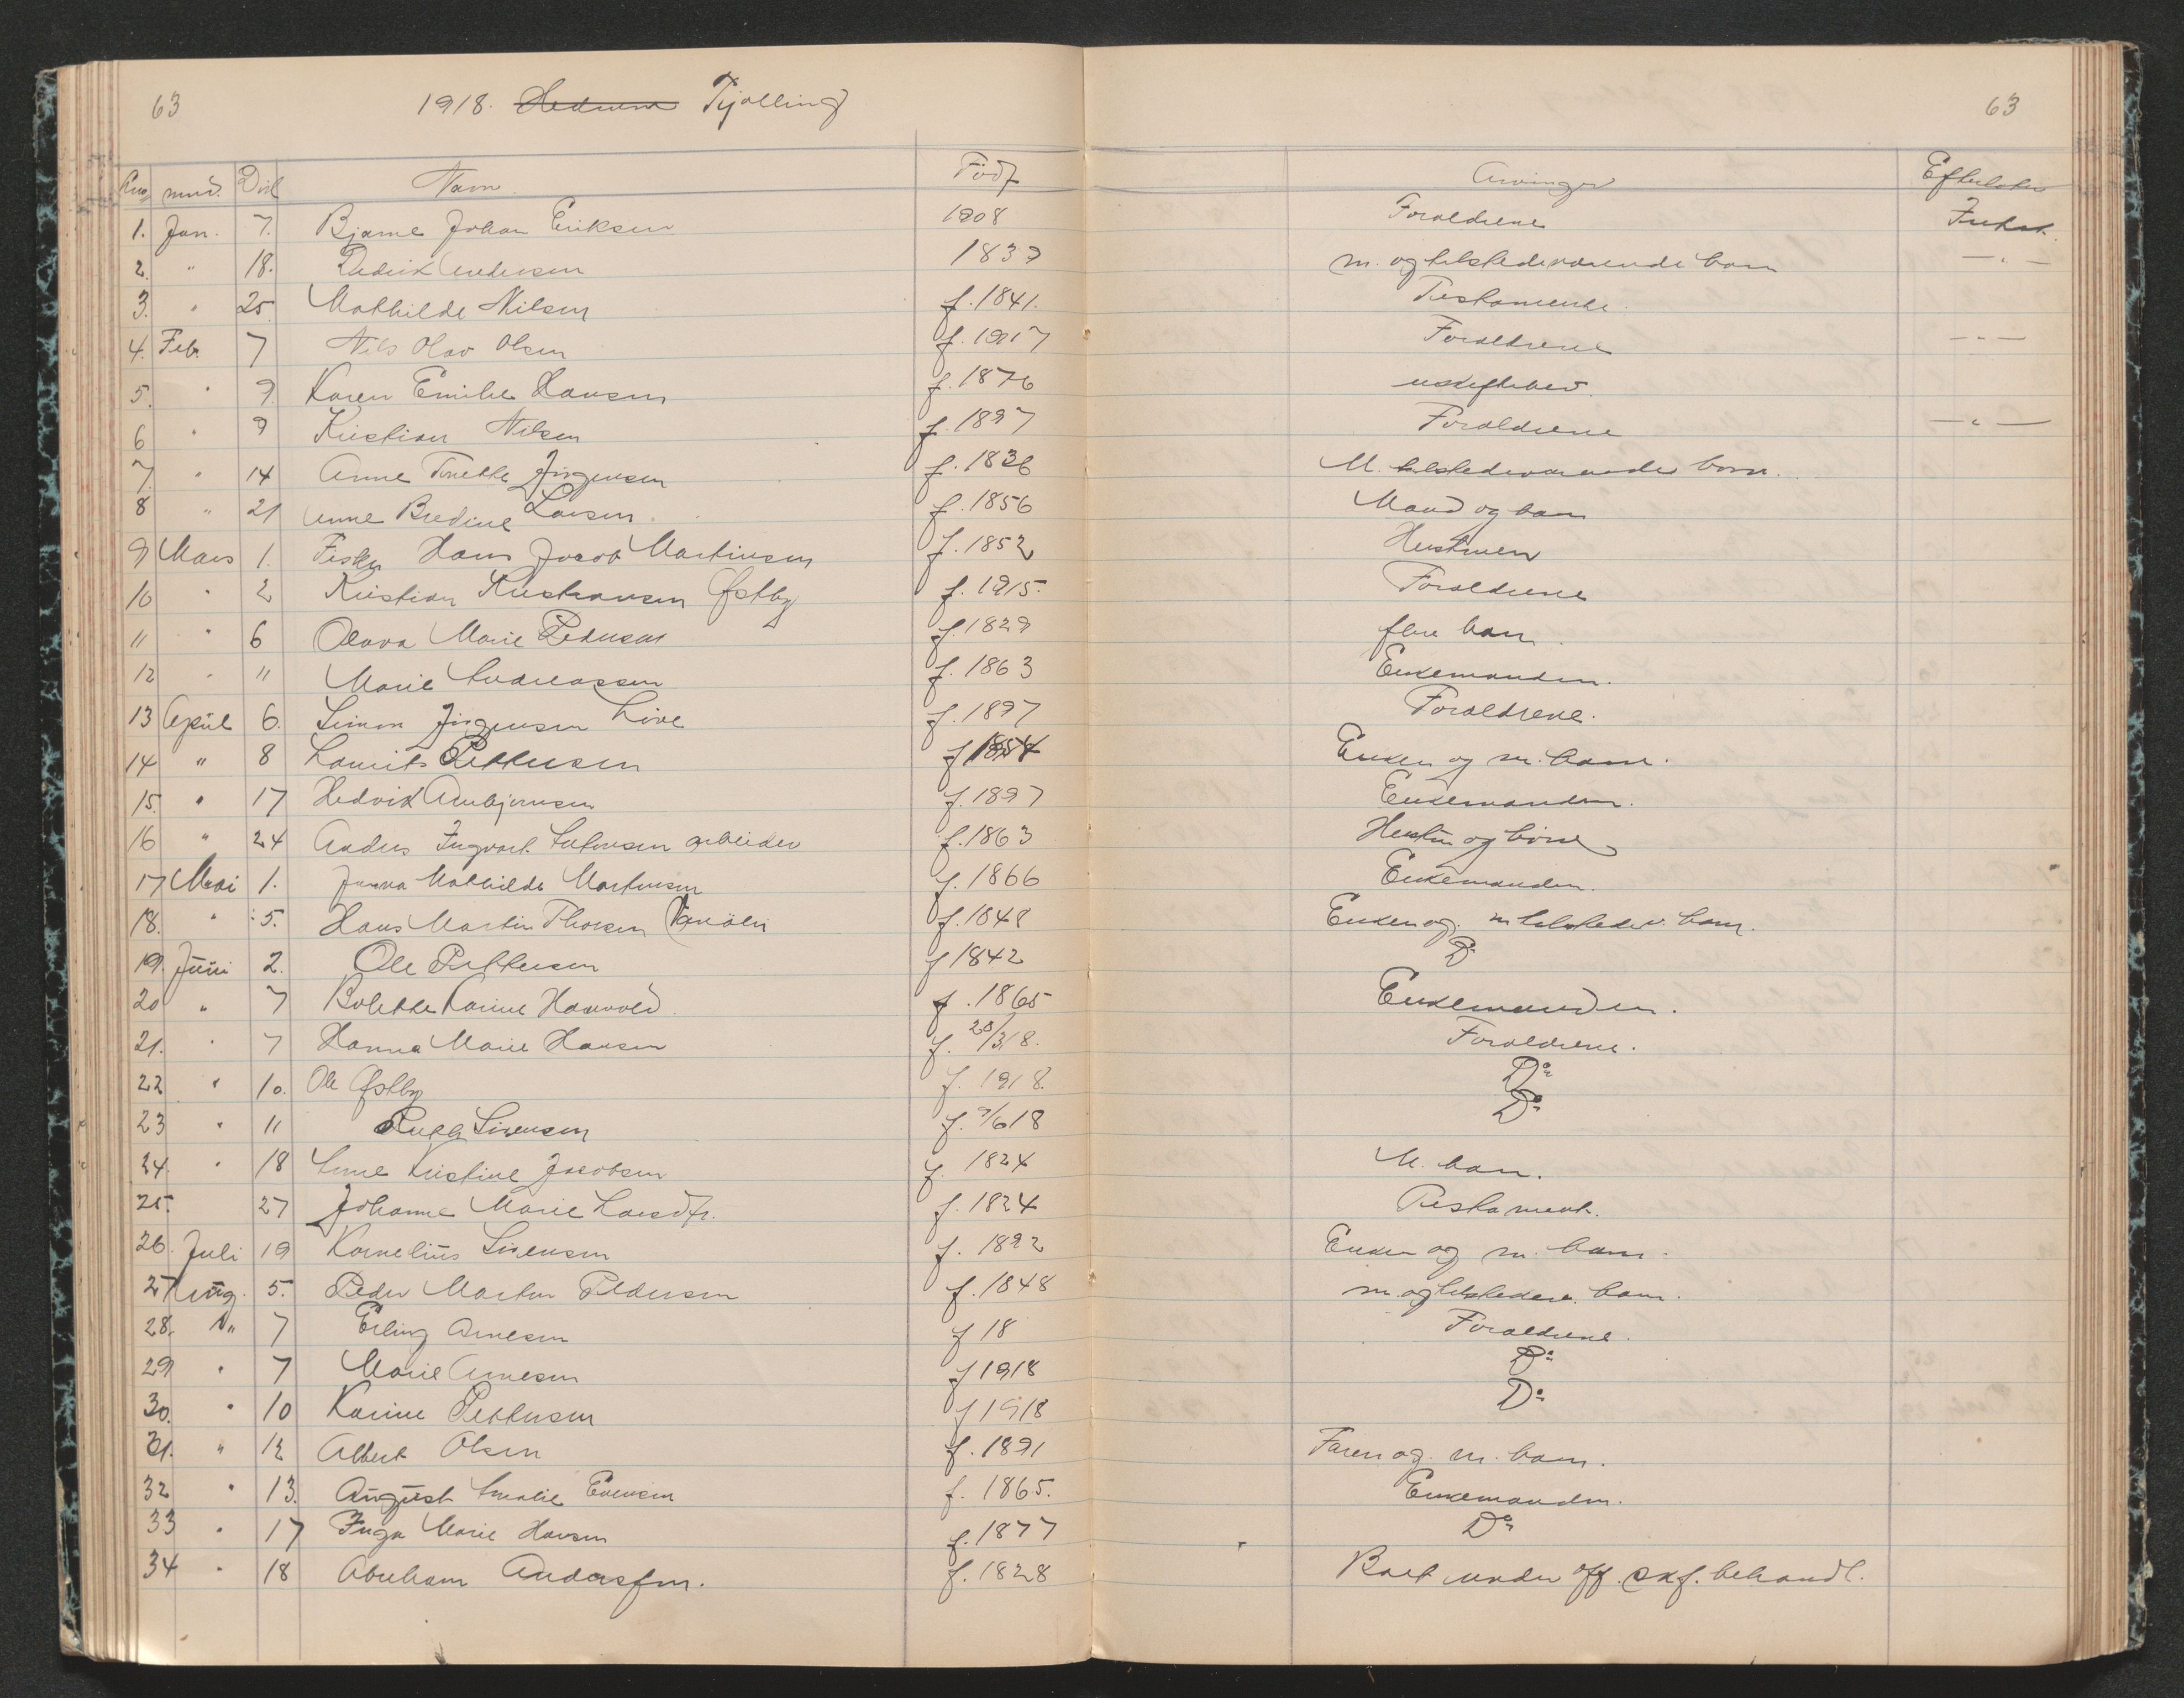 63 1918. Hedrum Tjølling 63
mnd. Død Navn Født Arvinger Efterlader
1. Jan. 7. Bjarne Johan Eriksen 1908 Forældrene Intet.
2. " 18. Didrik Andersen 1839 m. og tilstedeværende barn — " —
3. " 25. Mathilde Nilsen f. 1841. Testamente.
4. Feb. 7 Nils Olav Olsen f. 1917 Forældrene — " —
5. " 9. Karen Emilie Hansen f. 1876 uskiftebev.
6 " 9 Kristian Nilsen f. 1897 Forældrene — " —
7. " 14 Anne Jørgensen f. 1836 M. tilstedeværende barn.
8 " 21 Anne Bredine Larsen. f. 1856 Mand og barn
9 Mars 1. Fisker Hans Jacob Martinsen f. 1852 Hustruen
10 " 2 Kristian Kristiansen Østby f. 1915. Forældrene
11 " 6 Olava Marie Pedersen f. 1829 flere barn.
12 " 11 Marie Andreassen f. 1863 Enkemanden.
13 April 6. Simon Jørgensen Live f. 1897 Forældrene.
14 " 8 Laurits Pettersen f 1854 Enken og m. barn.
15. " 17 Hedvik Ambjørnsen f. 1897 Enkemanden.
16 " 24 Anders Ingvart arbeider f. 1863 Hustru og børn
17 Mai 1. Mathilde Martinsen f. 1866 Enkemanden.
18. " 5. Hans Martin Thorsen f. 1848 Enken og m tilstedev. barn.
19. Juni 2. Ole Pettersen f 1842 Do
20 " 7 Bolette Karine Hauvold f. 1865 Enkemanden.
21. " 7 Hanna Marie Hansen f. 28/3 18. Forældrene.
22 " 10. Ole Østby f. 1918. Do
23 " 11 Ruth Sørensen f. 9/6 18 Do
24. " 18 Anne Kristine Jacobsen f. 1824 M. barn.
25. 27 Johanne Marie Larsdtr. f. 1824 Testament.
26. Juli 19 Kornelius Sørensen f. 1892 Enken og m. barn.
27 Aug. 5. Peder Martin Pedersen f. 1848 m. og tilstedev. barn.
28. " 7 Erling Arnesen f 18 Forældrene.
29 " 7 Marie Arnesen f 1918 Do
30. " 10 Karine Pettersen f 1918 Do
31. " 12 Albert Olsen f. 1891 Faren og m. barn.
32 " 13. August Amalie Evensen f. 1865. Enkemanden.
33 " 17 Inga Marie Hansen f. 1877 Do
34 " 18 Abraham Andersen. f. 1828 Boet under off. skf. behandl.